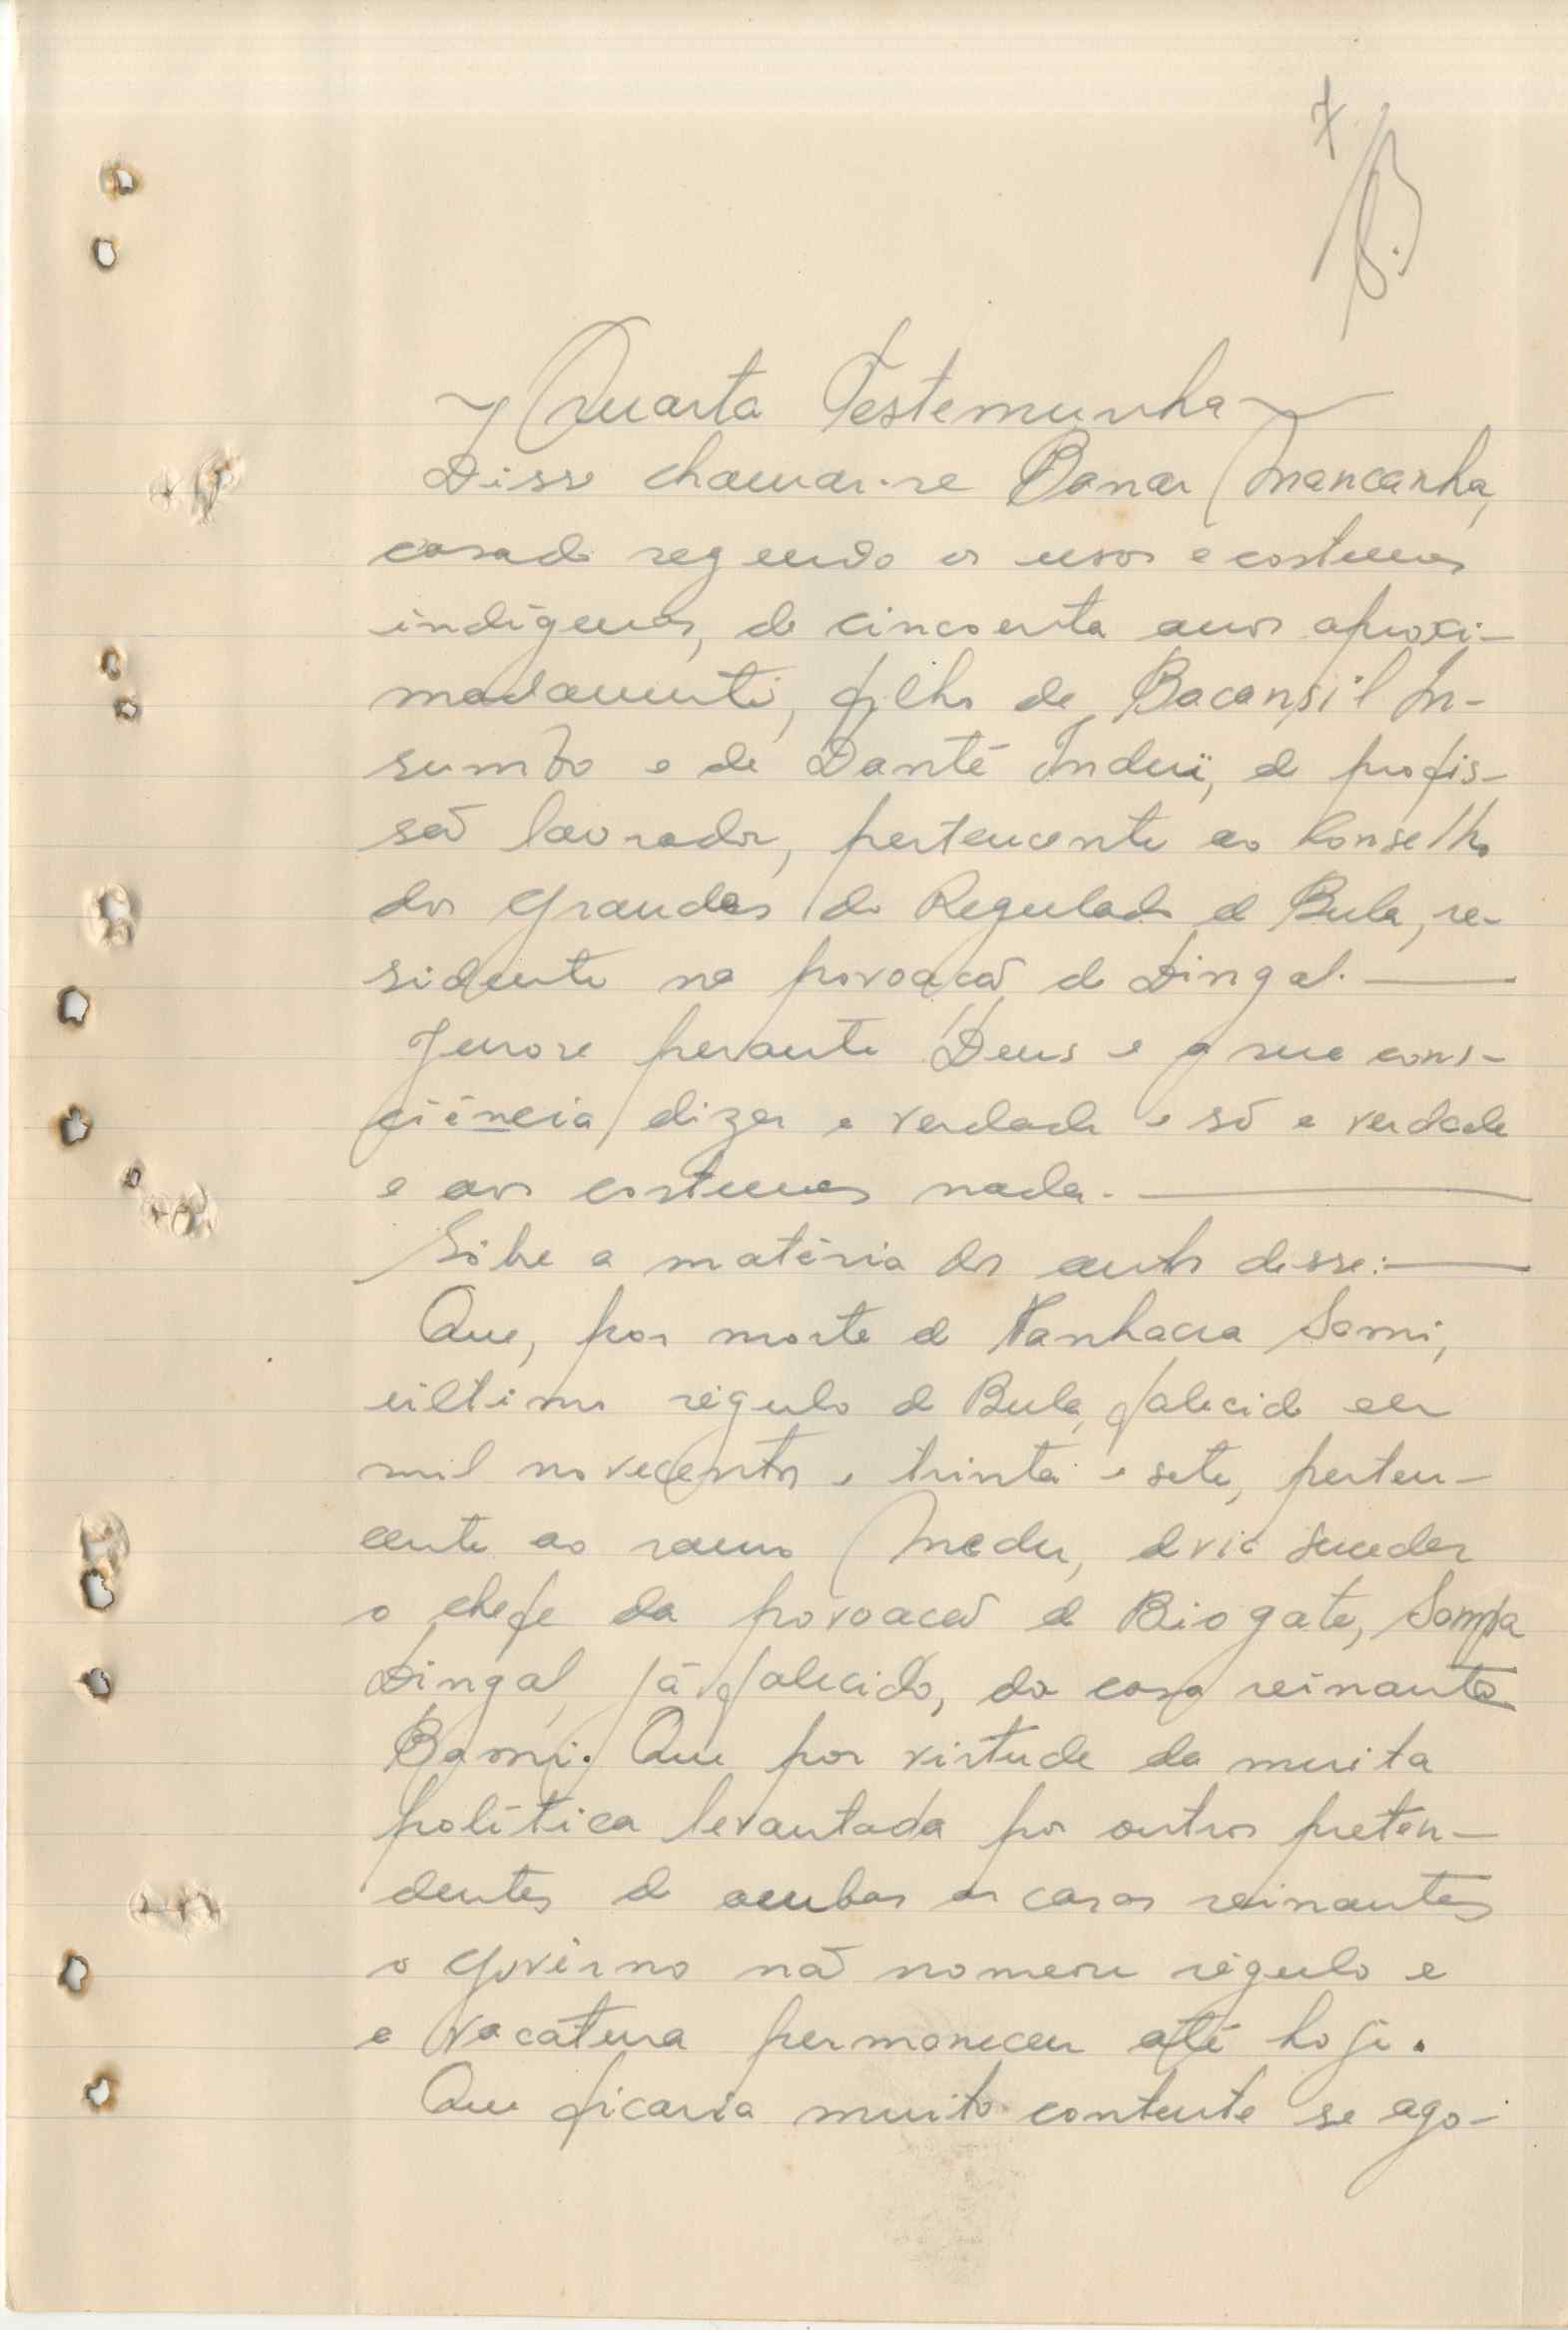 7
Quarta Testemunha
Disse chamar-se Banar Mancanha,
casado segundo os usos e costumes
indígenas, de cincoenta anos aproxi-
madamente, filho de Bacansil In-
sumbo e de Danté Induï, de profis-
são lavrador, pertencente ao Conselho
dos Grandes do Regulado de Bula, re-
sidente na povoação de Dingal.
Jurou perante Deus e a sua cons-
ciência dizer a verdade e só a verdade
e aos costumes nada.
Sôbre a matéria dos autos disse:
Que, por morte de Nanhacra Sami,
último régulo de Bula, falecido em
mil novecentos e trinta e sete, perten-
cente ao ramo Madu, devia suceder
o chefe da povoação de Biogate, Sampa
Dingal, já falecido, da casa reinante
Bami. Que por virtude da muita
política levantada por outros preten-
dentes de ambas as casas reinantes
o Govêrno não nomeou régulo e
a vacatura permaneceu até hoje.
Que ficaria muito contente se ago-